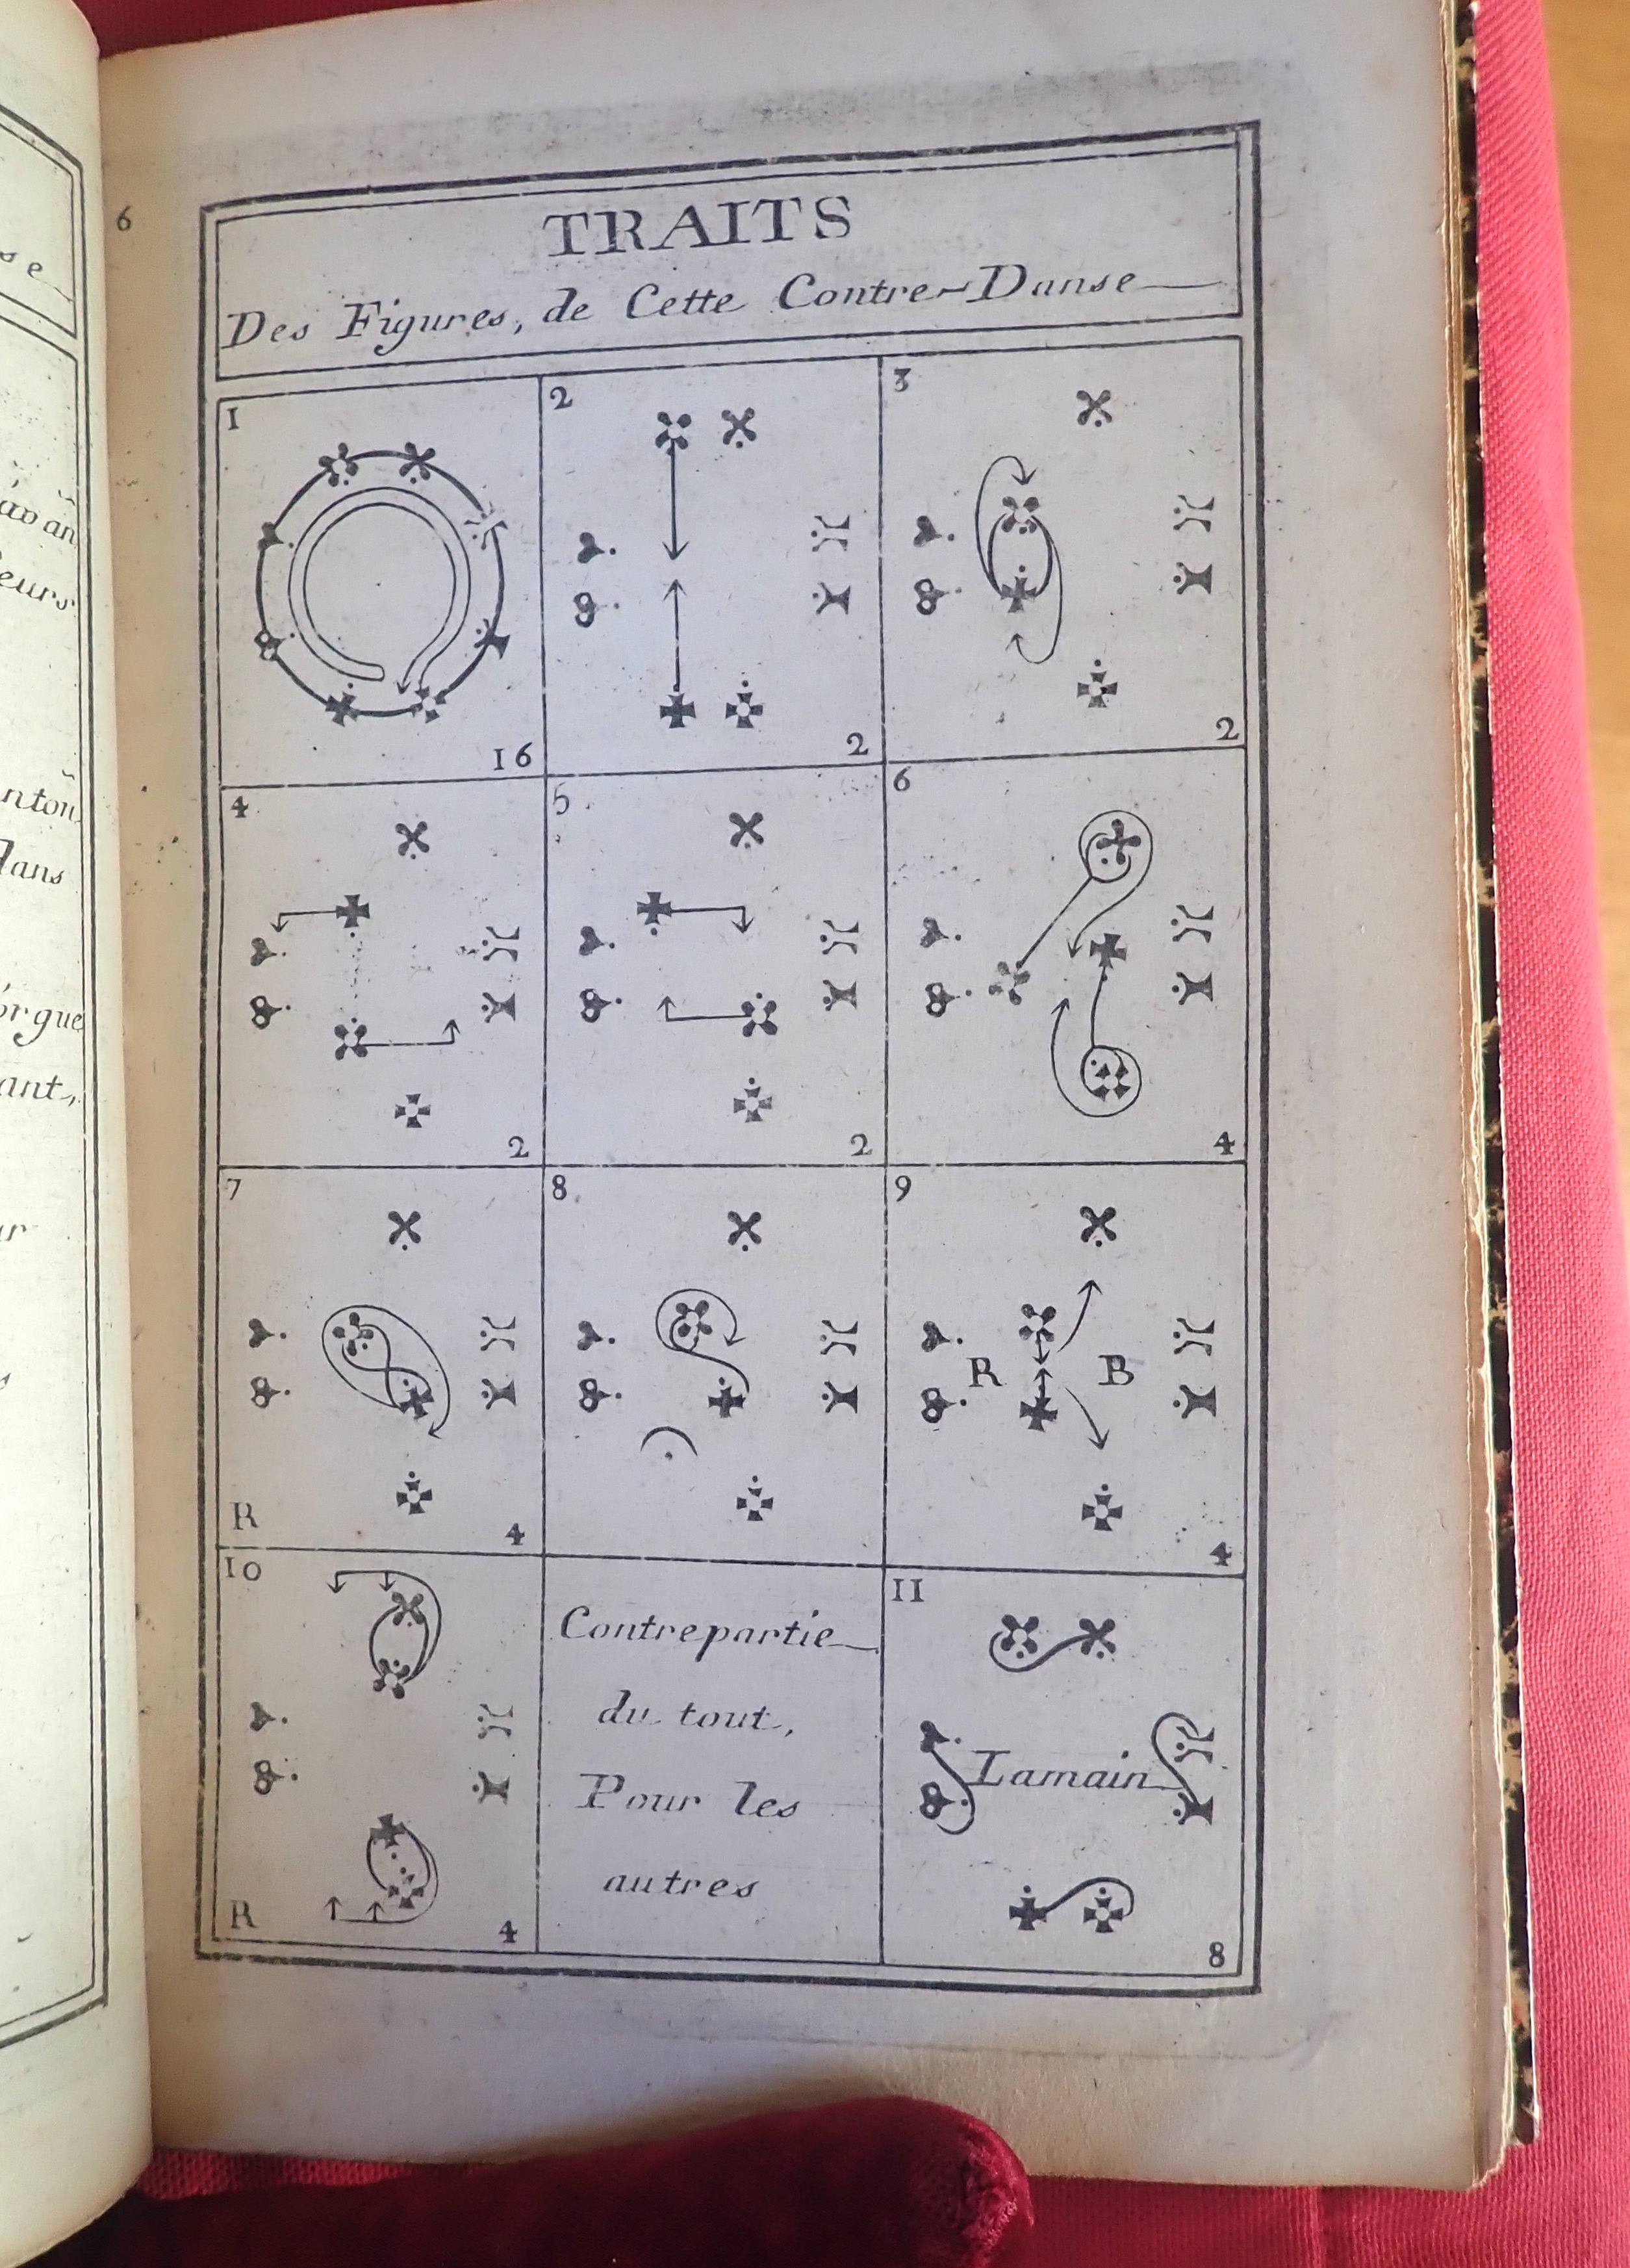 6
TRAITS
Des Figures, de Cette Contre-Danse
1
16
2
2
3
2
4
2
5
2
6
4
7
R
4
8
9
R B
4
10
R
4
Contrepartie
du tout,
Pour les
autres
11
Lamain
8